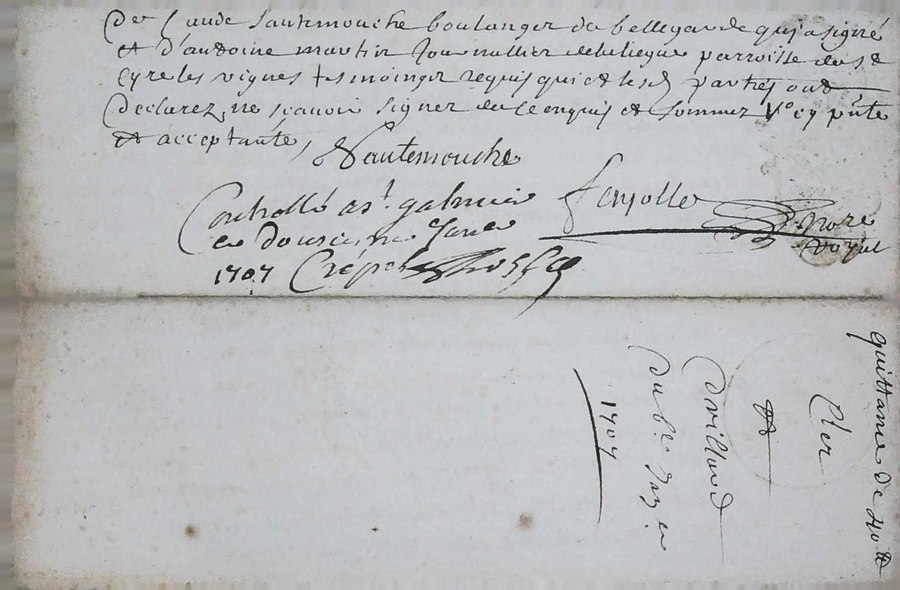 De Claude Sautemouche boulanger de bellegarde qui a signé
et d'antoine martin Journallier parroisse de st
Cyre les vignes tesmoings requis qui et lesd parties ont
declarez ne sçavoir signer de ce enquis et sommez
et acceptante,
Sautemouche
Controllé a st. galmier
ce dousieme Janer
1707 Crépet
ferjolle
Nore
Royal
quittance de 40 tt
Cler
et
Drilland
du
1707